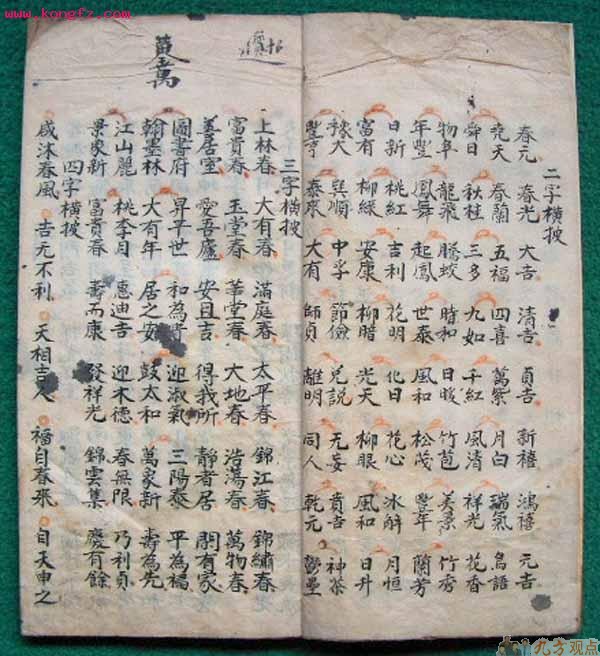 www.kongfz.com
二字横披
春元 春光 大吉 清吉 貞吉 新禧 鴻禧 元吉
堯天 春蘭 五福 四喜 萬紫 月白 瑞氣 鳥語
舜日 秋桂 三多 九如 千紅 風清 祥光 花香
物阜 龍飛 騰蛟 時和 日暖 竹苞 美景 竹秀
年豐 鳳舞 起鳳 世泰 風和 松茂 豐年 蘭芳
日新 桃紅 吉利 花明 化日 花心 冰解 月恒
富有 柳綠 安康 柳暗 光天 柳眼 風和 日升
豫大 巽順 中孚 節儉 兌説 无妄 賁吉 神荼
豐亨 泰來 大有 師貞 離明 同人 乾元 鬱壘
三字横披
上林春 大有春 滿庭春 太平春 錦江春 錦繡春
富貴春 玉堂春 華堂春 大地春 浩蕩春 萬物春
善居室 愛吾廬 安且吉 得我所 靜者居 閑有家
圖書府 昇平世 和為貴 迎淑氣 三陽泰 平為福
翰墨林 大有年 居之安 鼓太和 萬家新 壽為先
江山麗 桃李月 惠迪吉 迎木德 春無限 乃利貞
景象新 富貴春 壽而康 發祥光 錦雲集 慶有餘
四字横披
咸沐春風 吉无不利 天相吉人 福自春來 自天申之
九方观点